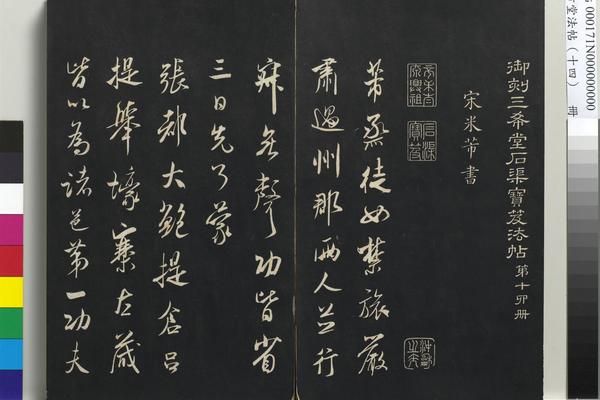 000171N000000000
堂法帖（十四） 冊
御刻三希堂石渠寶笈法帖 第十四册
宋米芾書
石渠寶笈
芾烝徒如禁旅嚴
肅過州郡兩人並行
寐無聲功皆省
三日先了蒙
張都大鮑提倉呂
提舉壕寨左藏
皆以為諸邑第一功夫